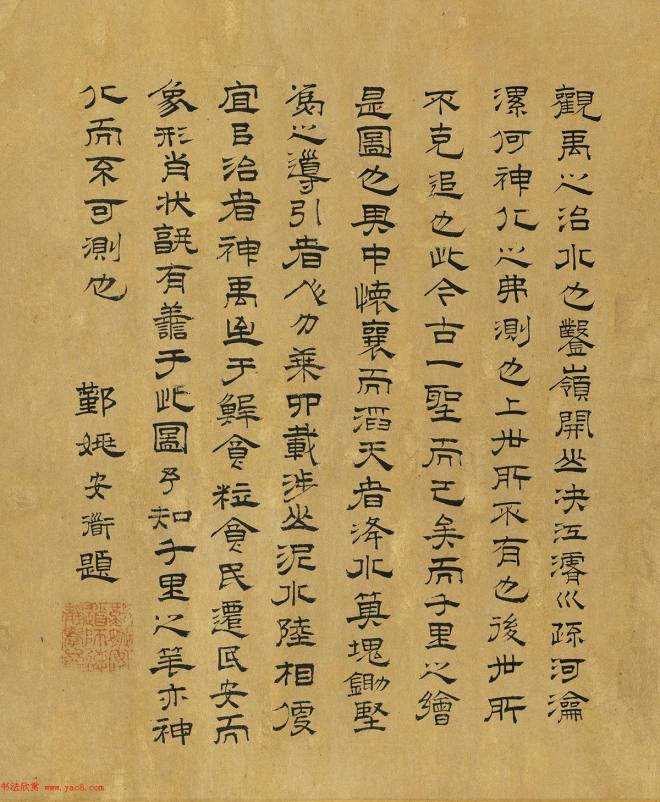 觀禹之治水也鑿嶺開山决江濬川疏河瀹
漯何神化之弗測也上世所不有也後世所
不克追也此今古一聖而已矣而千里之繪
是圖也其中懷襄而滔天者洚水箕塊鋤堅
為之導引者人力乘四載涉山泥水陸相便
宜以治者神禹至于鮮食粒食民遷民安而
象形肖状有善于此圖乎知千里之筆亦神
化而不可測也
鄞姚安衜題
书法欣赏 www.yac8.com